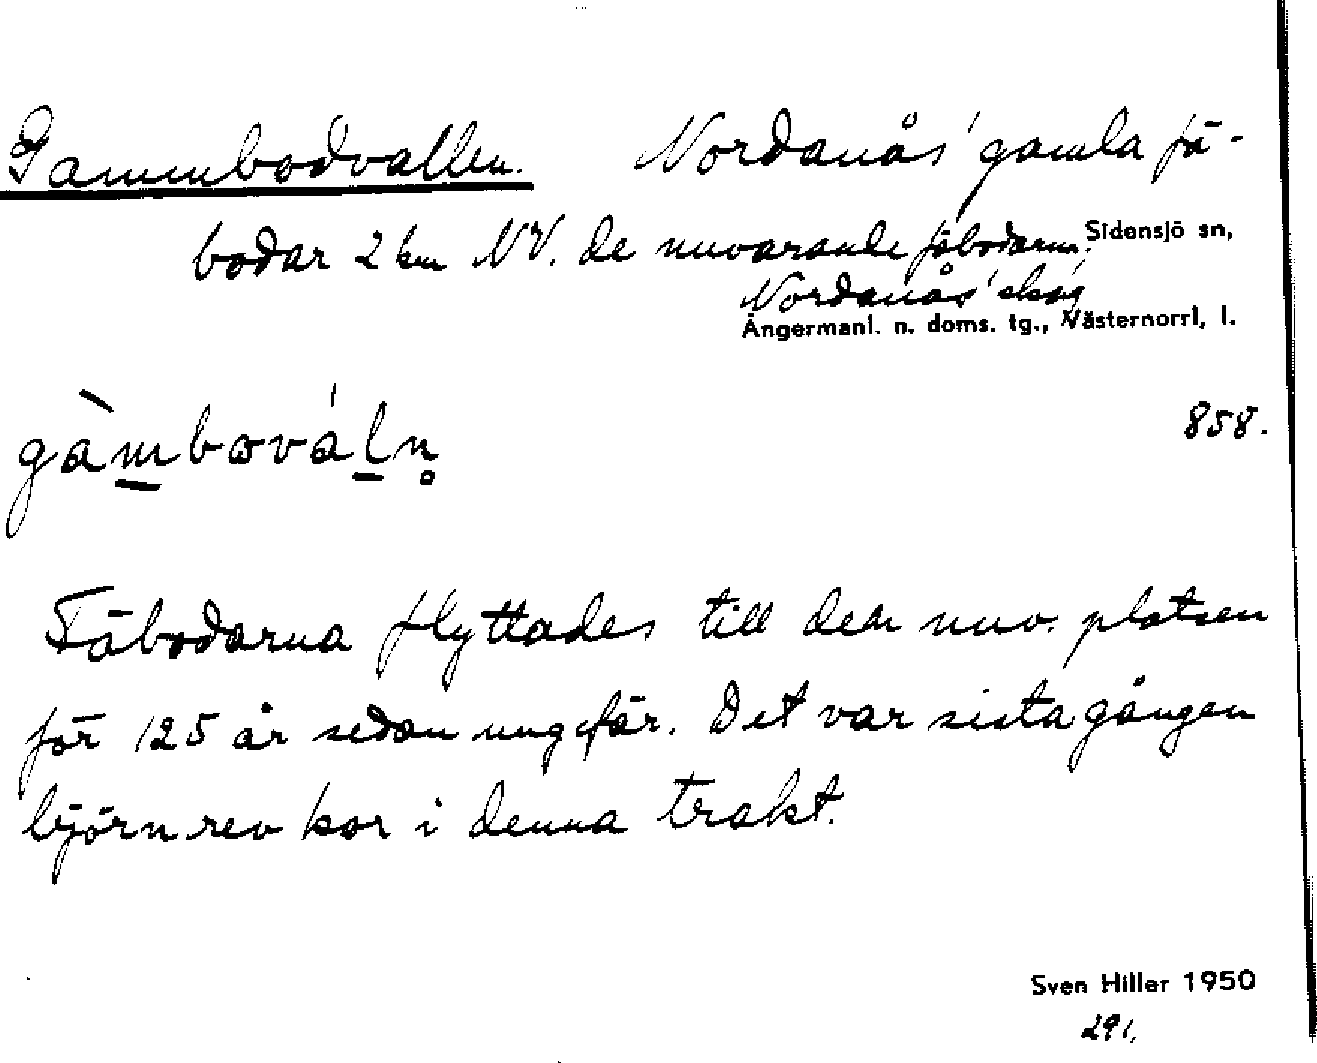 Gammbodvallen. Nordanås' gamla fä-
bodar 2 km NV. de nuvarande fäbodarna, Sidensjö sn,
Nordanås' skog
Ångermanl. n. doms. tg., Västernorrl, l.
858.
gàm̲bovál̲n̥
Fäbodarna flyttades till den nuv. platsen
för 125 år sedan ungefär. Det var sista gången
björn rev kor i denna trakt.
Sven Hiller 1950
291.